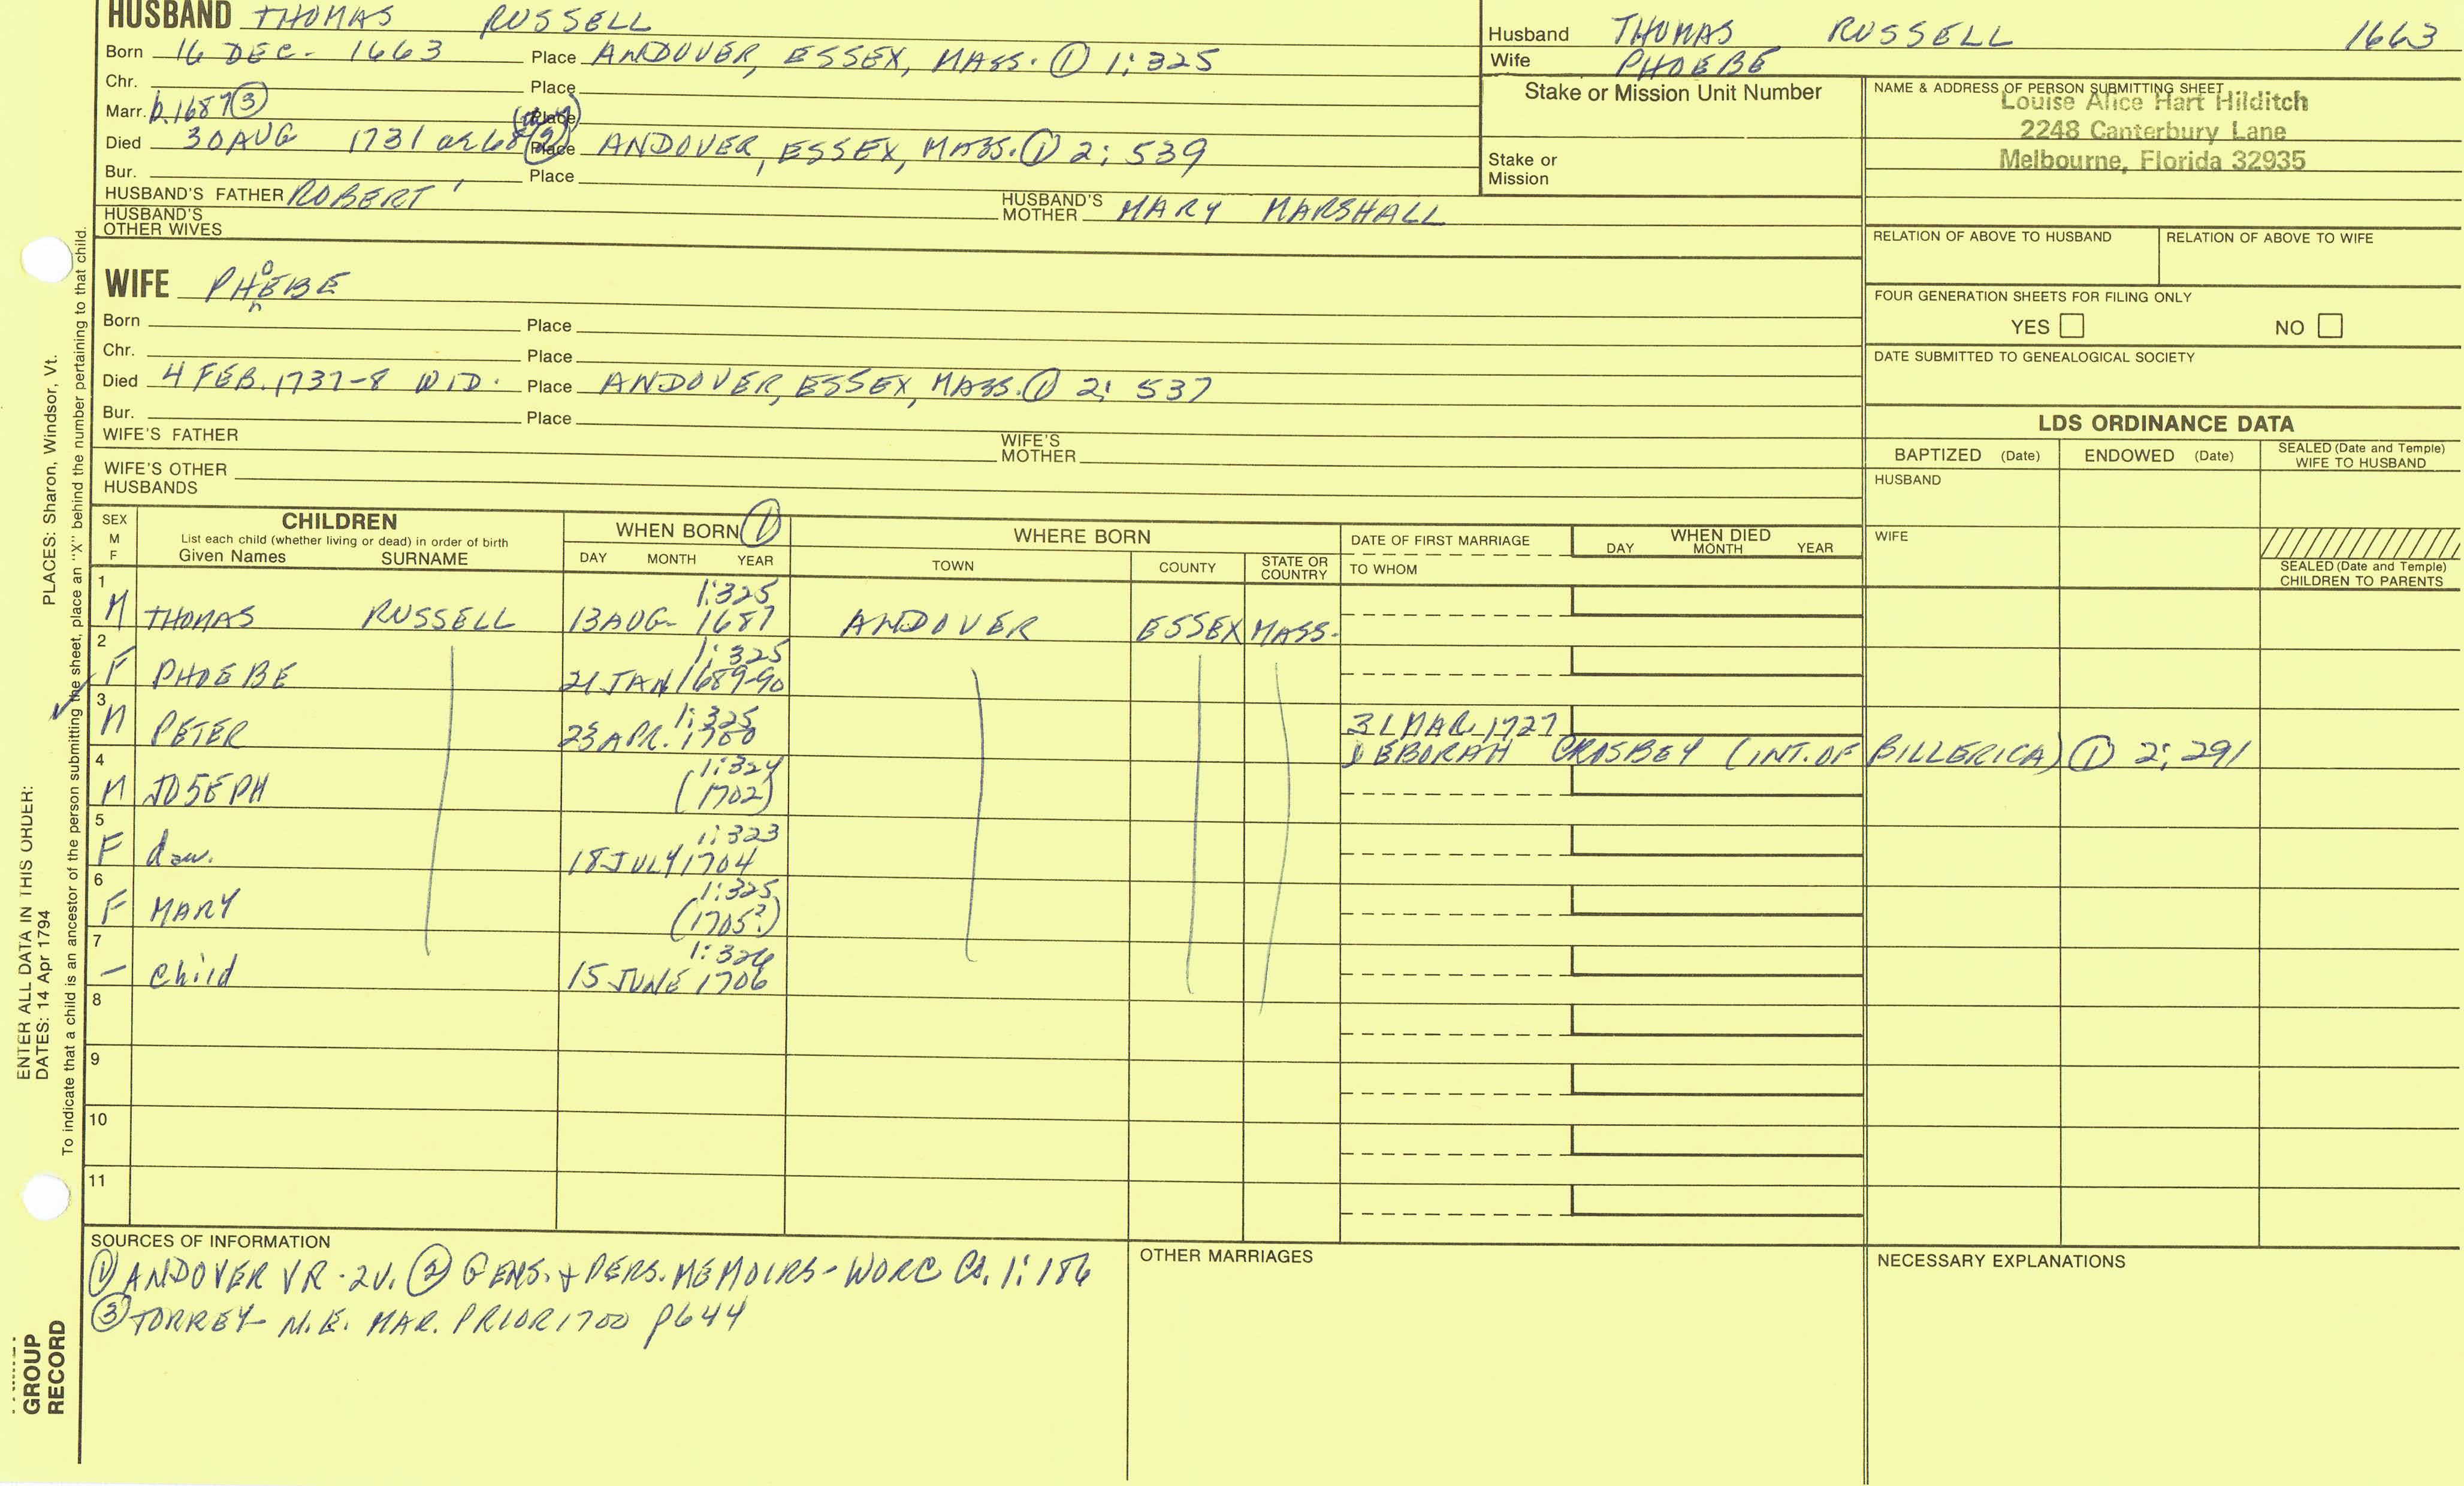 HUSBAND THOMAS RUSSELL
Born 16 DEC- 1663 Place ANDOVER, ESSEX, MASS. ① 1:325
Chr. Place
Marr. b.1687 ③ Place
Died 30 AUG 1731 ae 68 ② Place ANDOVER, ESSEX, MASS. ① 2: 539
Bur. Place
HUSBAND'S FATHER ROBERT HUSBAND'S MOTHER MARY MARSHALL
HUSBAND'S OTHER WIVES
Husband THOMAS RUSSELL 1663
Wife PHOEBE
Stake or Mission Unit Number
Stake or Mission
NAME & ADDRESS OF PERSON SUBMITTING SHEET
Louise Alice Hart Hilditch
2248 Canterbury Lane
Melbourne, Florida 32935
RELATION OF ABOVE TO HUSBAND RELATION OF ABOVE TO WIFE
FOUR GENERATION SHEETS FOR FILING ONLY
YES NO
DATE SUBMITTED TO GENEALOGICAL SOCIETY
WIFE PHOEBE
Born Place
Chr. Place
Died 4 FEB. 1737-8 WID. Place ANDOVER, ESSEX, MASS. ① 2: 537
Bur. Place
WIFE'S FATHER WIFE'S MOTHER
WIFE'S OTHER HUSBANDS
LDS ORDINANCE DATA
BAPTIZED (Date) ENDOWED (Date) SEALED (Date and Temple) WIFE TO HUSBAND
HUSBAND
WIFE
SEALED (Date and Temple) CHILDREN TO PARENTS
SEX M F
CHILDREN
List each child (whether living or dead) in order of birth
Given Names SURNAME
WHEN BORN ①
DAY MONTH YEAR
WHERE BORN
TOWN COUNTY STATE OR COUNTRY
DATE OF FIRST MARRIAGE
TO WHOM
WHEN DIED
DAY MONTH YEAR
1 1:325
M THOMAS RUSSELL 13 AUG- 1687 ANDOVER ESSEX MASS.
2 1:325
F PHOEBE 21 JAN 1689-90
3 1:325 31 MAR. 1727
M PETER 23 APR. 1700 DEBORAH CROSBEY (INT. OF BILLERICA) ① 2: 291
4 1:324
M JOSEPH (1702)
5 1:323
F daw. 18 JULY 1704
6 1:325
F MARY (1705?)
7 1:326
– child 15 JUNE 1706
8
9
10
11
SOURCES OF INFORMATION
① ANDOVER VR - 2V. ② GENS. & PERS. MEMOIRS - WORC Co. 1:186
③ TORREY - N.E. MAR. PRIOR 1700 p644
OTHER MARRIAGES
NECESSARY EXPLANATIONS
ENTER ALL DATA IN THIS ORDER:
DATES: 14 Apr 1794 PLACES: Sharon, Windsor, Vt.
To indicate that a child is an ancestor of the person submitting the sheet, place an "X" behind the number pertaining to that child.
GROUP
RECORD